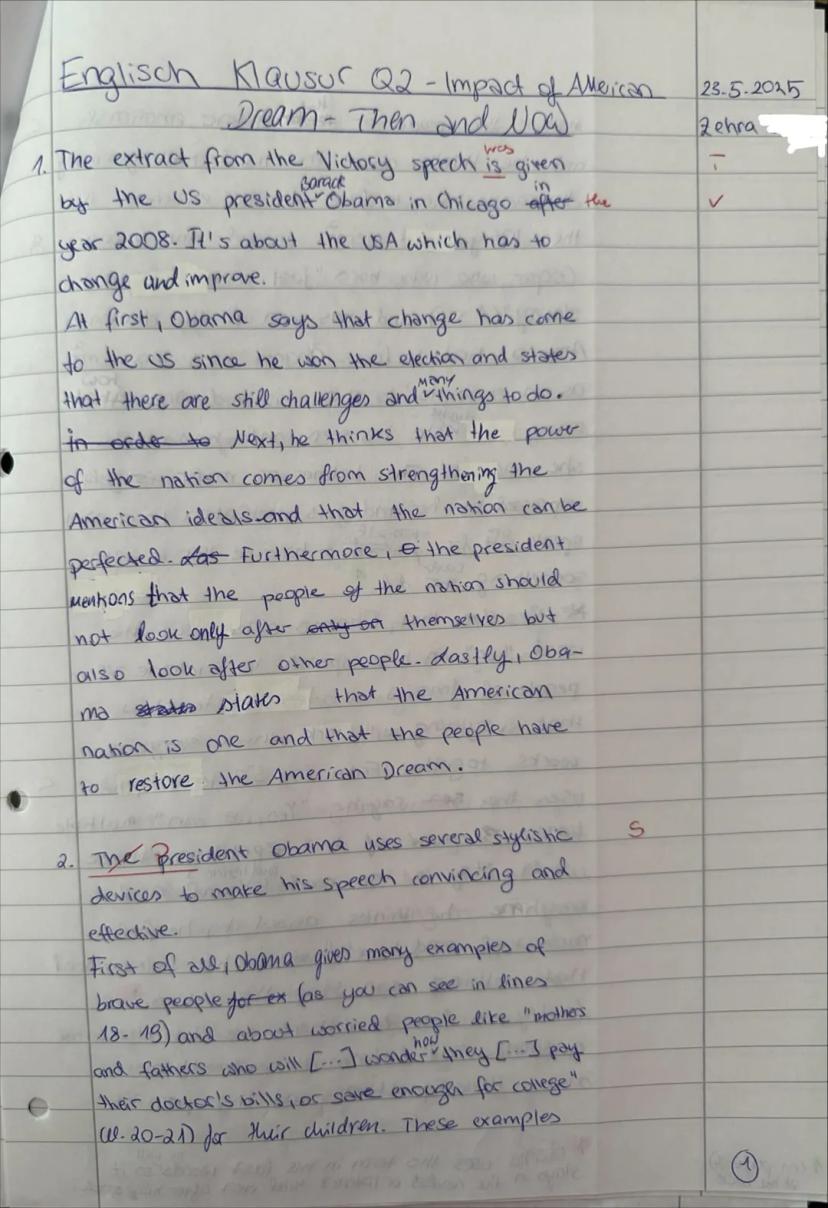 Englisch Klausur Q2 - Impact of American
Dream - Then and Now
23.5.2025
Zehra
1. The extract from the Victory speech is was given
by the US president Barack Obama in Chicago after in the
year 2008. It's about the USA which has to
change and improve.
At first, Obama says that change has come
to the US since he won the election and states
that there are still challenges and many things to do.
in order to Next, he thinks that the power
of the nation comes from strengthening the
American ideals and that the nation can be
perfected. Las Furthermore, the president
mentions that the people of the nation should
not look only after only on themselves but
also look after other people. Lastly, Oba-
ma states states that the American
nation is one and that the people have
to restore the American Dream.
2. The President Obama uses several stylistic
S
devices to make his speech convincing and
effective.
First of all, Obama gives many examples of
brave people for ex (as you can see in lines
18-19) and about worried people like "mothers
and fathers who will [...] wonder how they [...] pay
their doctor's bills, or save enough for college"
(ll. 20-21) for their children. These examples
1